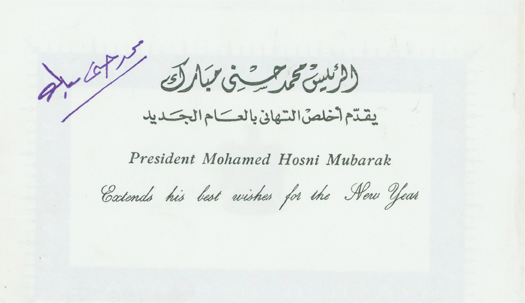 محمد حسنى مبارك
الرئيس محمد حسنى مبارك
يقدّم أخلص التهانى بالعام الجديد
President Mohamed Hosni Mubarak
Extends his best wishes for the New Year